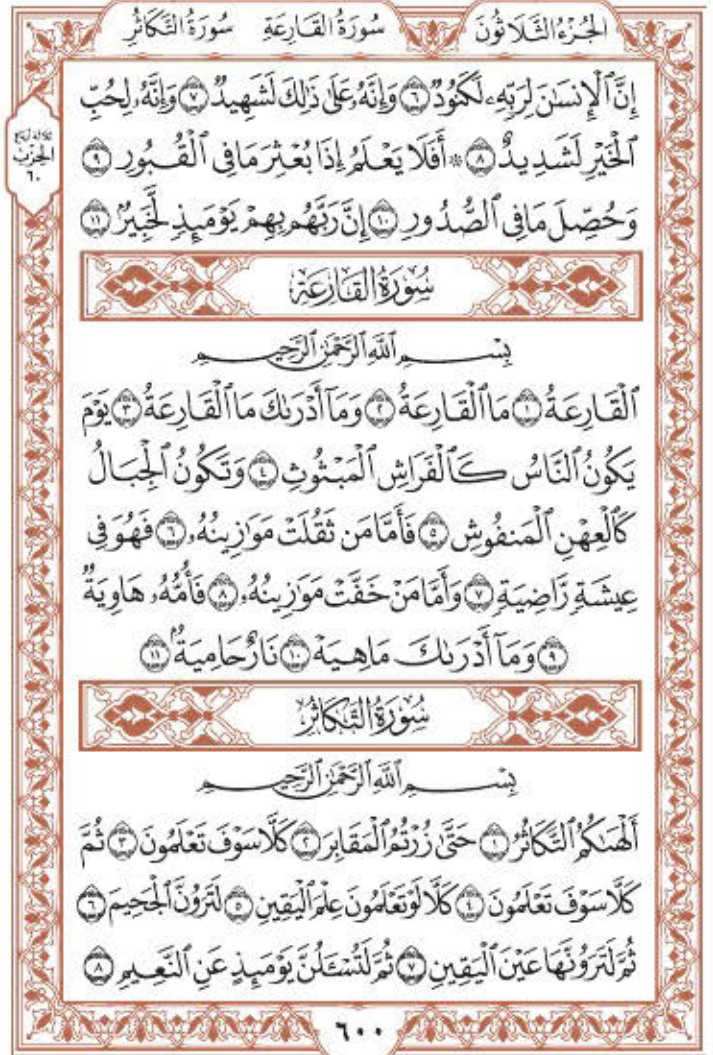 الجُزْءُ الثَّلَاثُونَ سُورَةُ القَارِعَةِ سُورَةُ التَّكَاثُرِ
إِنَّ ٱلْإِنسَٰنَ لِرَبِّهِۦ لَكَنُودٌ ۝٦ وَإِنَّهُۥ عَلَىٰ ذَٰلِكَ لَشَهِيدٌ ۝٧ وَإِنَّهُۥ لِحُبِّ
ثلاثة أرباع
الحِزْب
٦٠
ٱلْخَيْرِ لَشَدِيدٌ ۝٨ ۞ أَفَلَا يَعْلَمُ إِذَا بُعْثِرَ مَا فِي ٱلْقُبُورِ ۝٩
وَحُصِّلَ مَا فِي ٱلصُّدُورِ ۝١٠ إِنَّ رَبَّهُم بِهِمْ يَوْمَئِذٍ لَّخَبِيرٌۢ ۝١١
سُورَةُ القَارِعَةِ
بِسْمِ ٱللَّهِ ٱلرَّحْمَٰنِ ٱلرَّحِيمِ
ٱلْقَارِعَةُ ۝١ مَا ٱلْقَارِعَةُ ۝٢ وَمَآ أَدْرَىٰكَ مَا ٱلْقَارِعَةُ ۝٣ يَوْمَ
يَكُونُ ٱلنَّاسُ كَٱلْفَرَاشِ ٱلْمَبْثُوثِ ۝٤ وَتَكُونُ ٱلْجِبَالُ
كَٱلْعِهْنِ ٱلْمَنفُوشِ ۝٥ فَأَمَّا مَن ثَقُلَتْ مَوَٰزِينُهُۥ ۝٦ فَهُوَ فِي
عِيشَةٍ رَّاضِيَةٍ ۝٧ وَأَمَّا مَنْ خَفَّتْ مَوَٰزِينُهُۥ ۝٨ فَأُمُّهُۥ هَاوِيَةٌ
۝٩ وَمَآ أَدْرَىٰكَ مَا هِيَهْ ۝١٠ نَارٌ حَامِيَةٌۢ ۝١١
سُورَةُ التَّكَاثُرِ
بِسْمِ ٱللَّهِ ٱلرَّحْمَٰنِ ٱلرَّحِيمِ
أَلْهَىٰكُمُ ٱلتَّكَاثُرُ ۝١ حَتَّىٰ زُرْتُمُ ٱلْمَقَابِرَ ۝٢ كَلَّا سَوْفَ تَعْلَمُونَ ۝٣ ثُمَّ
كَلَّا سَوْفَ تَعْلَمُونَ ۝٤ كَلَّا لَوْ تَعْلَمُونَ عِلْمَ ٱلْيَقِينِ ۝٥ لَتَرَوُنَّ ٱلْجَحِيمَ ۝٦
ثُمَّ لَتَرَوُنَّهَا عَيْنَ ٱلْيَقِينِ ۝٧ ثُمَّ لَتُسْـَٔلُنَّ يَوْمَئِذٍ عَنِ ٱلنَّعِيمِ ۝٨
٦٠٠